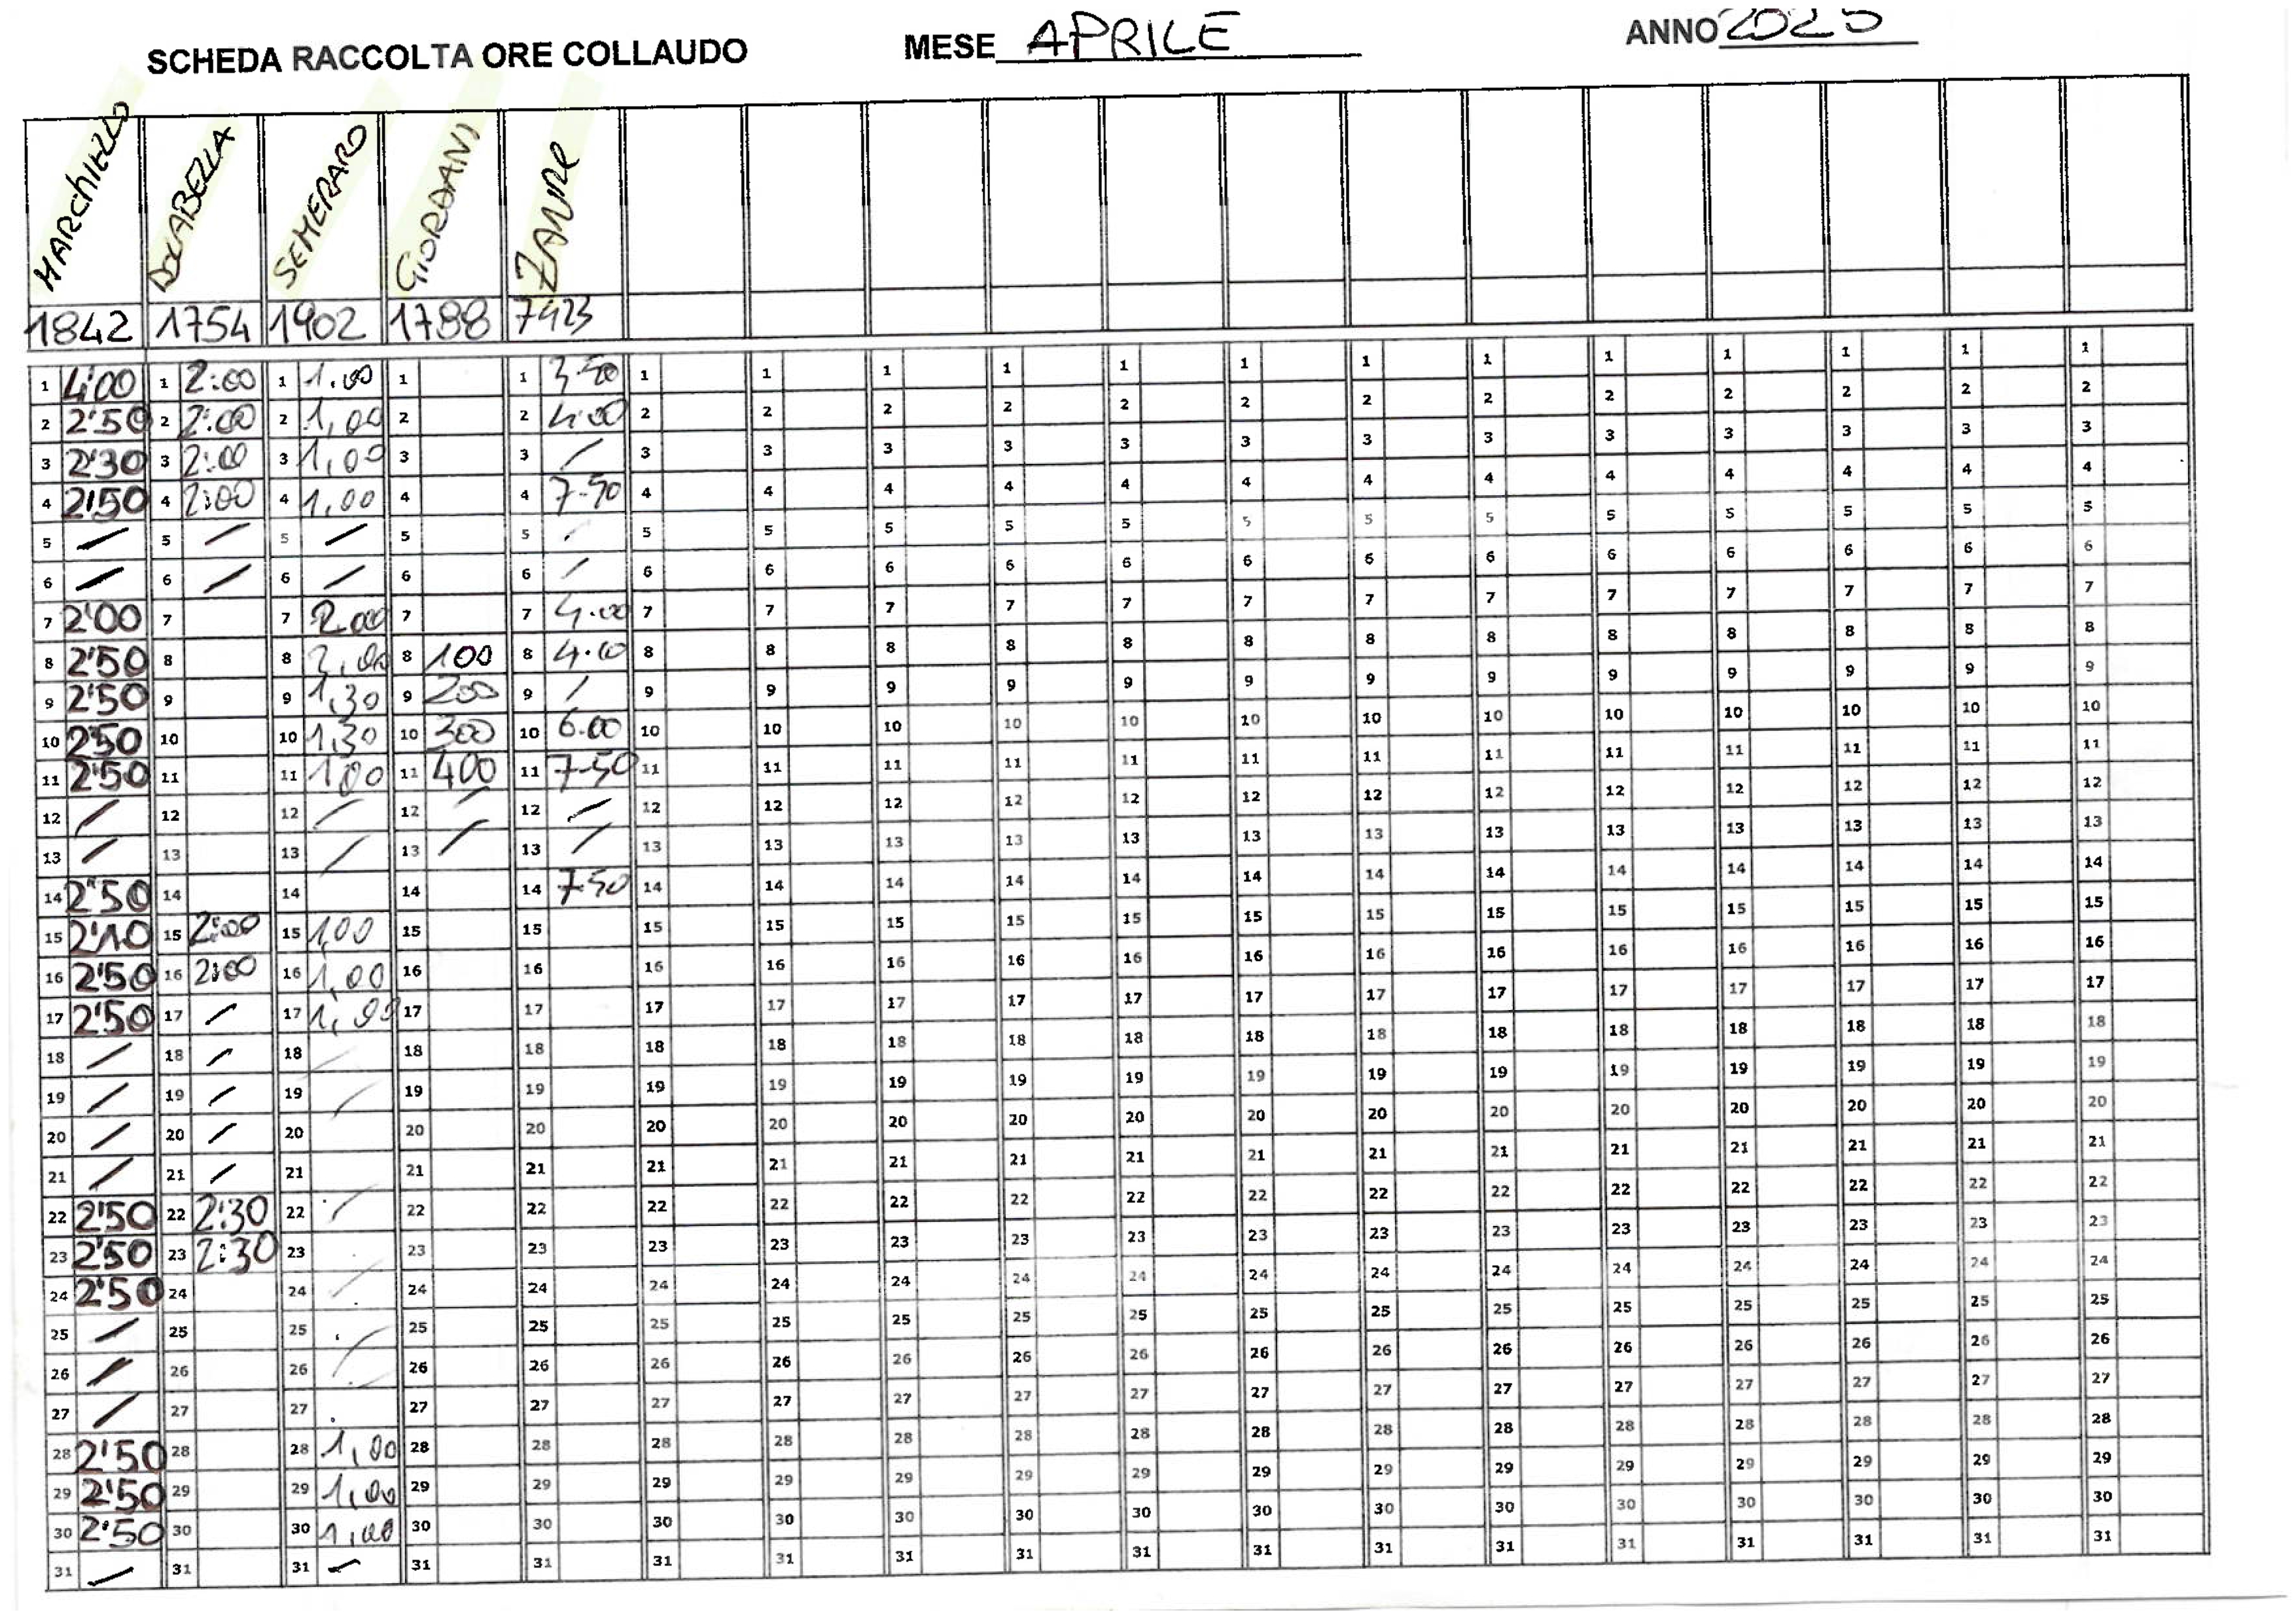 SCHEDA RACCOLTA ORE COLLAUDO MESE APRILE ANNO 2025
MARCHIELLO DOLABELLA SEMERARO GIORDANI
1842 1754 1902 1788 7423
1 4:00 1 2:00 1 1.00 1 1 3.50 1 1 1 1 1 1 1 1 1 1 1 1 1
2 2'50 2 2:00 2 1,00 2 2 4.00 2 2 2 2 2 2 2 2 2 2 2 2 2
3 2'30 3 2:00 3 1,00 3 3 / 3 3 3 3 3 3 3 3 3 3 3 3 3
4 2'50 4 2:00 4 1,00 4 4 7-50 4 4 4 4 4 4 4 4 4 4 4 4 4
5 / 5 / 5 / 5 5 / 5 5 5 5 5 5 5 5 5 5 5 5 5
6 / 6 / 6 / 6 6 / 6 6 6 6 6 6 6 6 6 6 6 6 6
7 2'00 7 7 2.00 7 7 4.00 7 7 7 7 7 7 7 7 7 7 7 7 7
8 2'50 8 8 8 100 8 4.00 8 8 8 8 8 8 8 8 8 8 8 8 8
9 2'50 9 9 1,30 9 200 9 / 9 9 9 9 9 9 9 9 9 9 9 9 9
10 2'50 10 10 1,30 10 300 10 6.00 10 10 10 10 10 10 10 10 10 10 10 10 10
11 2'50 11 11 1,00 11 400 11 7-50 11 11 11 11 11 11 11 11 11 11 11 11 11
12 / 12 12 / 12 / 12 / 12 12 12 12 12 12 12 12 12 12 12 12 12
13 / 13 13 / 13 / 13 / 13 13 13 13 13 13 13 13 13 13 13 13 13
14 2'50 14 14 14 14 7-50 14 14 14 14 14 14 14 14 14 14 14 14 14
15 2'10 15 2:00 15 1,00 15 15 15 15 15 15 15 15 15 15 15 15 15 15 15
16 2'50 16 2:00 16 1,00 16 16 16 16 16 16 16 16 16 16 16 16 16 16 16
17 2'50 17 / 17 1,00 17 17 17 17 17 17 17 17 17 17 17 17 17 17 17
18 / 18 / 18 / 18 18 18 18 18 18 18 18 18 18 18 18 18 18 18
19 / 19 / 19 / 19 19 19 19 19 19 19 19 19 19 19 19 19 19 19
20 / 20 / 20 20 20 20 20 20 20 20 20 20 20 20 20 20 20 20
21 / 21 / 21 21 21 21 21 21 21 21 21 21 21 21 21 21 21 21
22 2'50 22 2:30 22 / 22 22 22 22 22 22 22 22 22 22 22 22 22 22 22
23 2'50 23 2:30 23 23 23 23 23 23 23 23 23 23 23 23 23 23 23 23
24 2'50 24 24 / 24 24 24 24 24 24 24 24 24 24 24 24 24 24 24
25 / 25 25 25 25 25 25 25 25 25 25 25 25 25 25 25 25 25
26 / 26 26 / 26 26 26 26 26 26 26 26 26 26 26 26 26 26 26
27 / 27 27 27 27 27 27 27 27 27 27 27 27 27 27 27 27 27
28 2'50 28 28 1,00 28 28 28 28 28 28 28 28 28 28 28 28 28 28 28
29 2'50 29 29 1,00 29 29 29 29 29 29 29 29 29 29 29 29 29 29 29
30 2'50 30 30 1,00 30 30 30 30 30 30 30 30 30 30 30 30 30 30 30
31 / 31 31 / 31 31 31 31 31 31 31 31 31 31 31 31 31 31 31